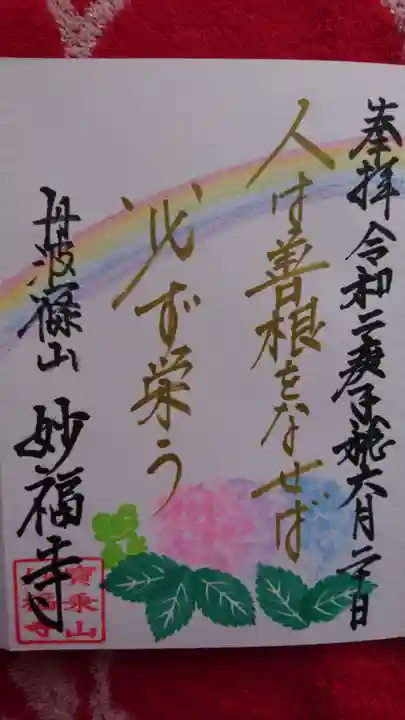 奉拝 令和二庚子歳六月二十日
人は善根をなせば
必ず栄う
丹波篠山 妙福寺
寳乗山
妙福寺